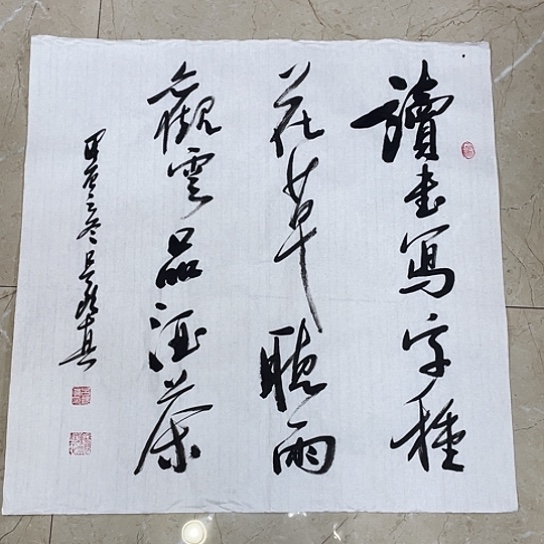 讀书寫字種
花草聽雨
觀雲品酒茶
之冬